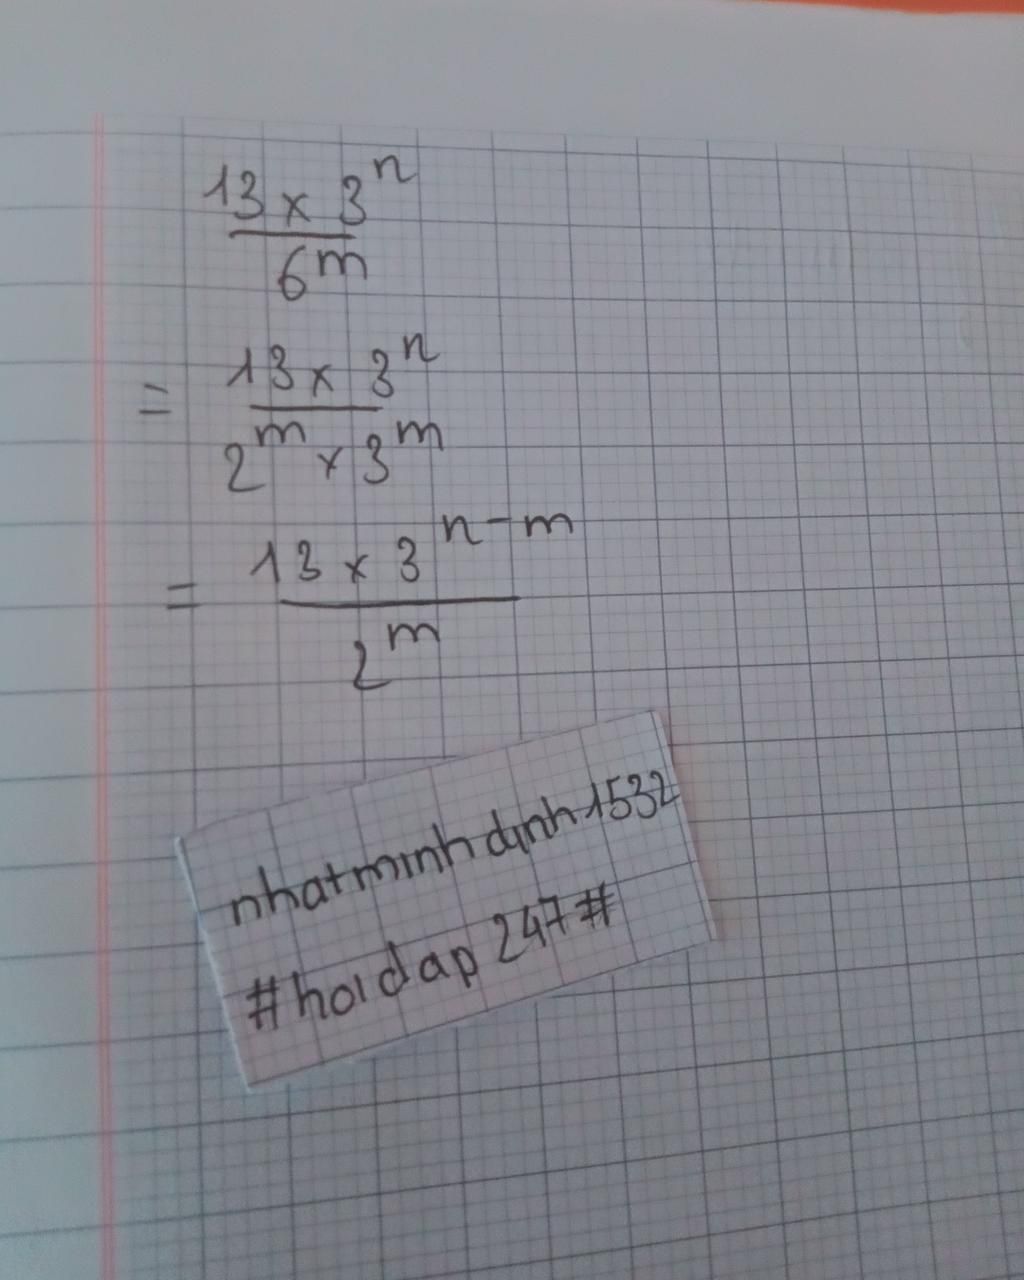 13 x 3^n
6^m
= 13 x 3^n
2^m x 3^m
= 13 x 3^n-m
2^m
nhatminhdinh1532
#hoidap247#